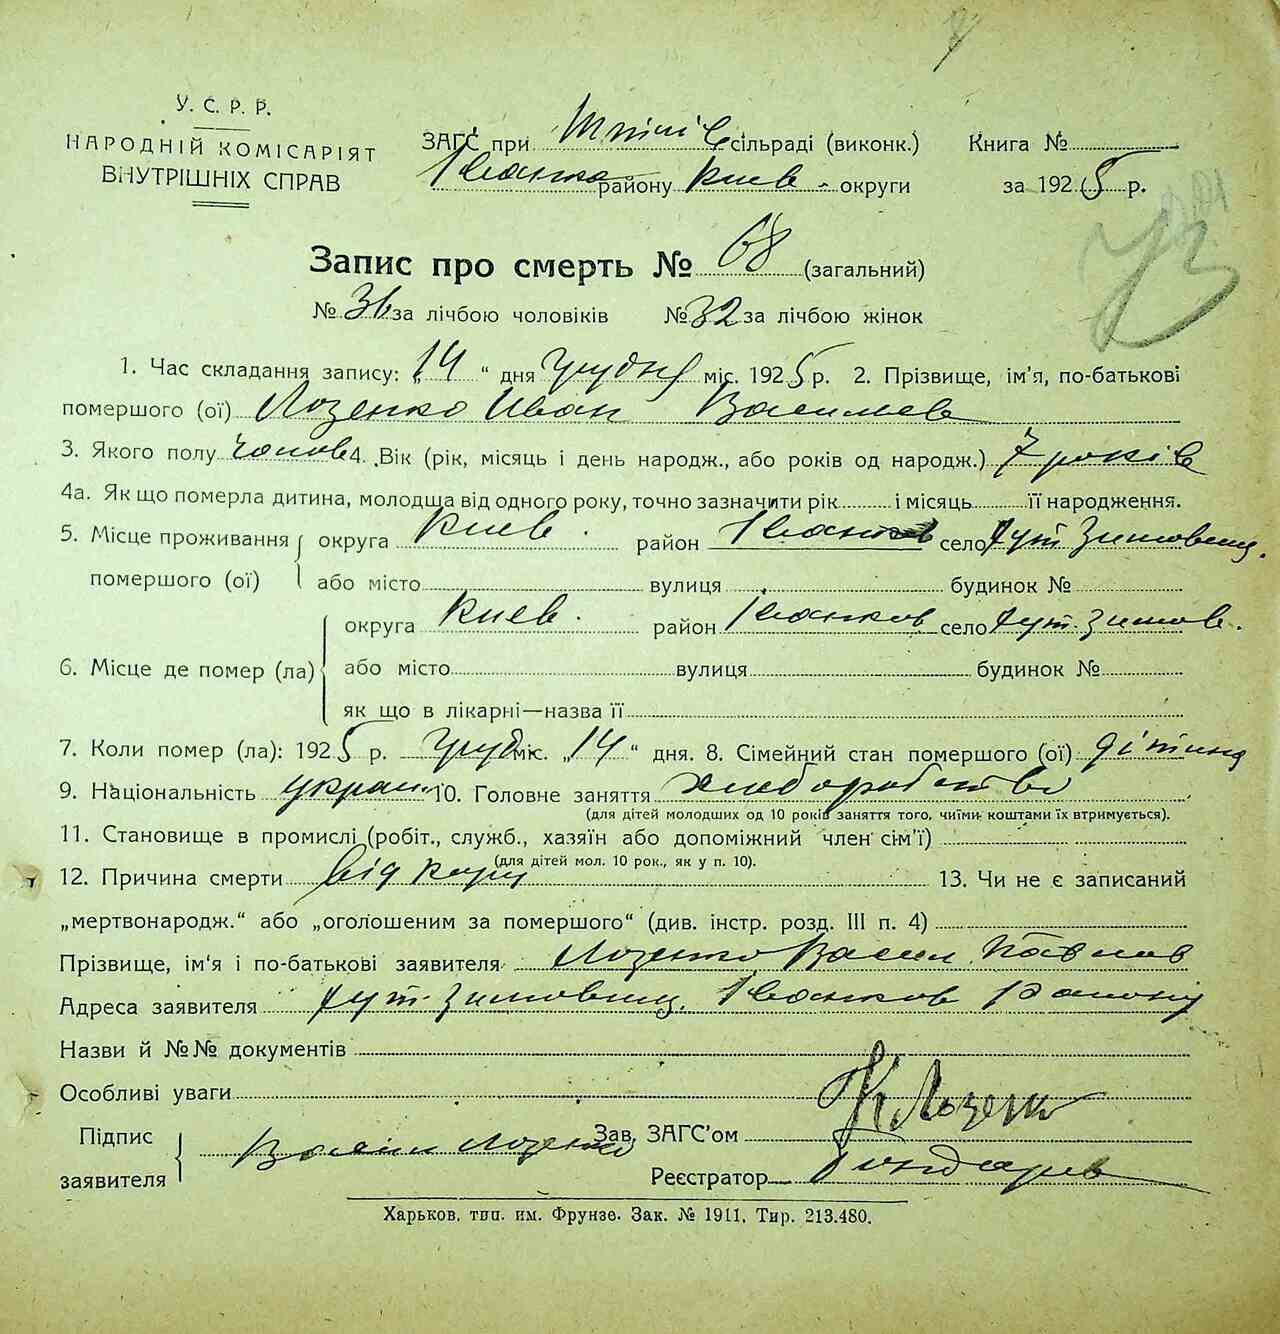 У. С. Р. Р.
НАРОДНІЙ КОМІСАРІЯТ
ВНУТРІШНІХ СПРАВ
ЗАГС при сільраді (виконк.)
району Киев. округи
Книга №
за 1925 р.
Запис про смерть № 68 (загальний)
№ 36 за лічбою чоловіків № 32 за лічбою жінок
1. Час складання запису: „14“ дня грудня міс. 1925 р. 2. Прізвище, ім’я, по-батькові
помершого (ої) Лозенко Иван Василиев
3. Якого полу чолов 4. Вік (рік, місяць і день народж., або років од народж.) 7 років
4а. Як що померла дитина, молодша від одного року, точно зазначити рік і місяць її народження.
5. Місце проживання помершого (ої) округа Киев. район село хут Зимовищ.
або місто вулиця будинок №
6. Місце де помер (ла) округа Киев. район Іванков село хут. Зимов.
або місто вулиця будинок №
як що в лікарні—назва її
7. Коли помер (ла): 1925 р. груд міс. „14“ дня. 8. Сімейний стан помершого (ої) дітина
9. Національність украин 10. Головне заняття хлеборобство
(для дітей молодших од 10 років заняття того, чиїми коштами їх втримується).
11. Становище в промислі (робіт., служб., хазяїн або допоміжний член сім’ї)
(для дітей мол. 10 рок., як у п. 10).
12. Причина смерти від кору 13. Чи не є записаний
„мертвонародж.“ або „оголошеним за помершого“ (див. інстр. розд. III п. 4)
Прізвище, ім‘я і по-батькові заявителя Лозенко Васил Павлов
Адреса заявителя хут. Зимовищ. Іванков Району
Назви й №№ документів
Особливі уваги
Підпис заявителя Василь Лозенко
Зав. ЗАГС’ом К Лозенко
Реєстратор Гондарев
Харьков, тип. им. Фрунзе. Зак. № 1911, Тир. 213.480.